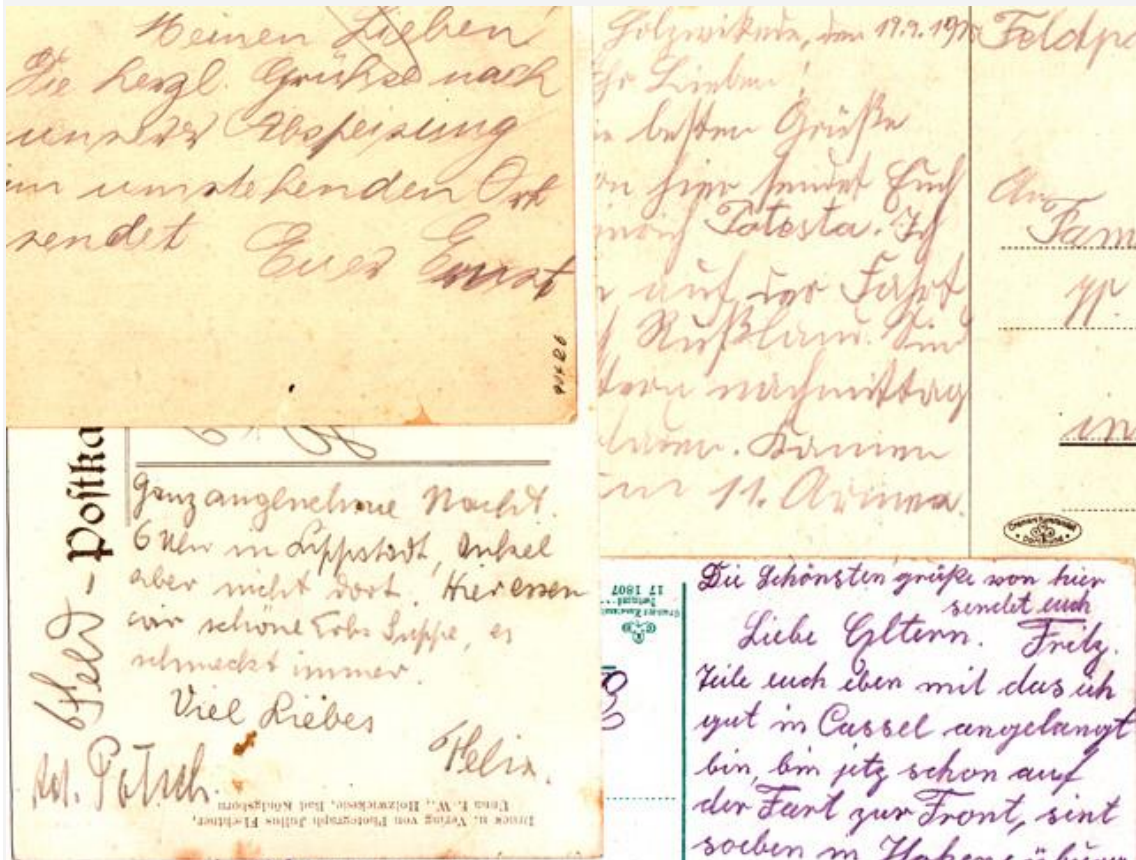 Meinen Lieben!
Die herzl. Grühse nach
unserer Abspeisung
im umstehenden Ort
sendet Euer Ernst
Holzwikede, den 19.9.191
Ihr Lieben!
ie besten Grüße
on hier sendet Euch
inrich Potesta. Ich
n auf der Fahrt
Rußland. Sind
stern nachmittag
laden. Kamen
11. Armee.
Feldpo
An
Fam
in
Feld - Postka
Ganz angenehme Nacht.
6 Uhr in Lippstadt, Onkel
aber nicht dort. Hier essen
wir schöne Erbs Suppe, es
schmeckt immer.
Viel Liebes
Felix.
Druck u. Verlag von Photograph Julius Flechtner,
Unna i. W., Holzwickede, Bad Königsborn
17 1807
Die Schönsten grüße von hier
sendet euch
Liebe Eltern. Fritz.
Teile euch eben mit das ich
gut in Cassel angelangt
bin, bin jetz schon auf
der Fart zur Front, sint
soeben in